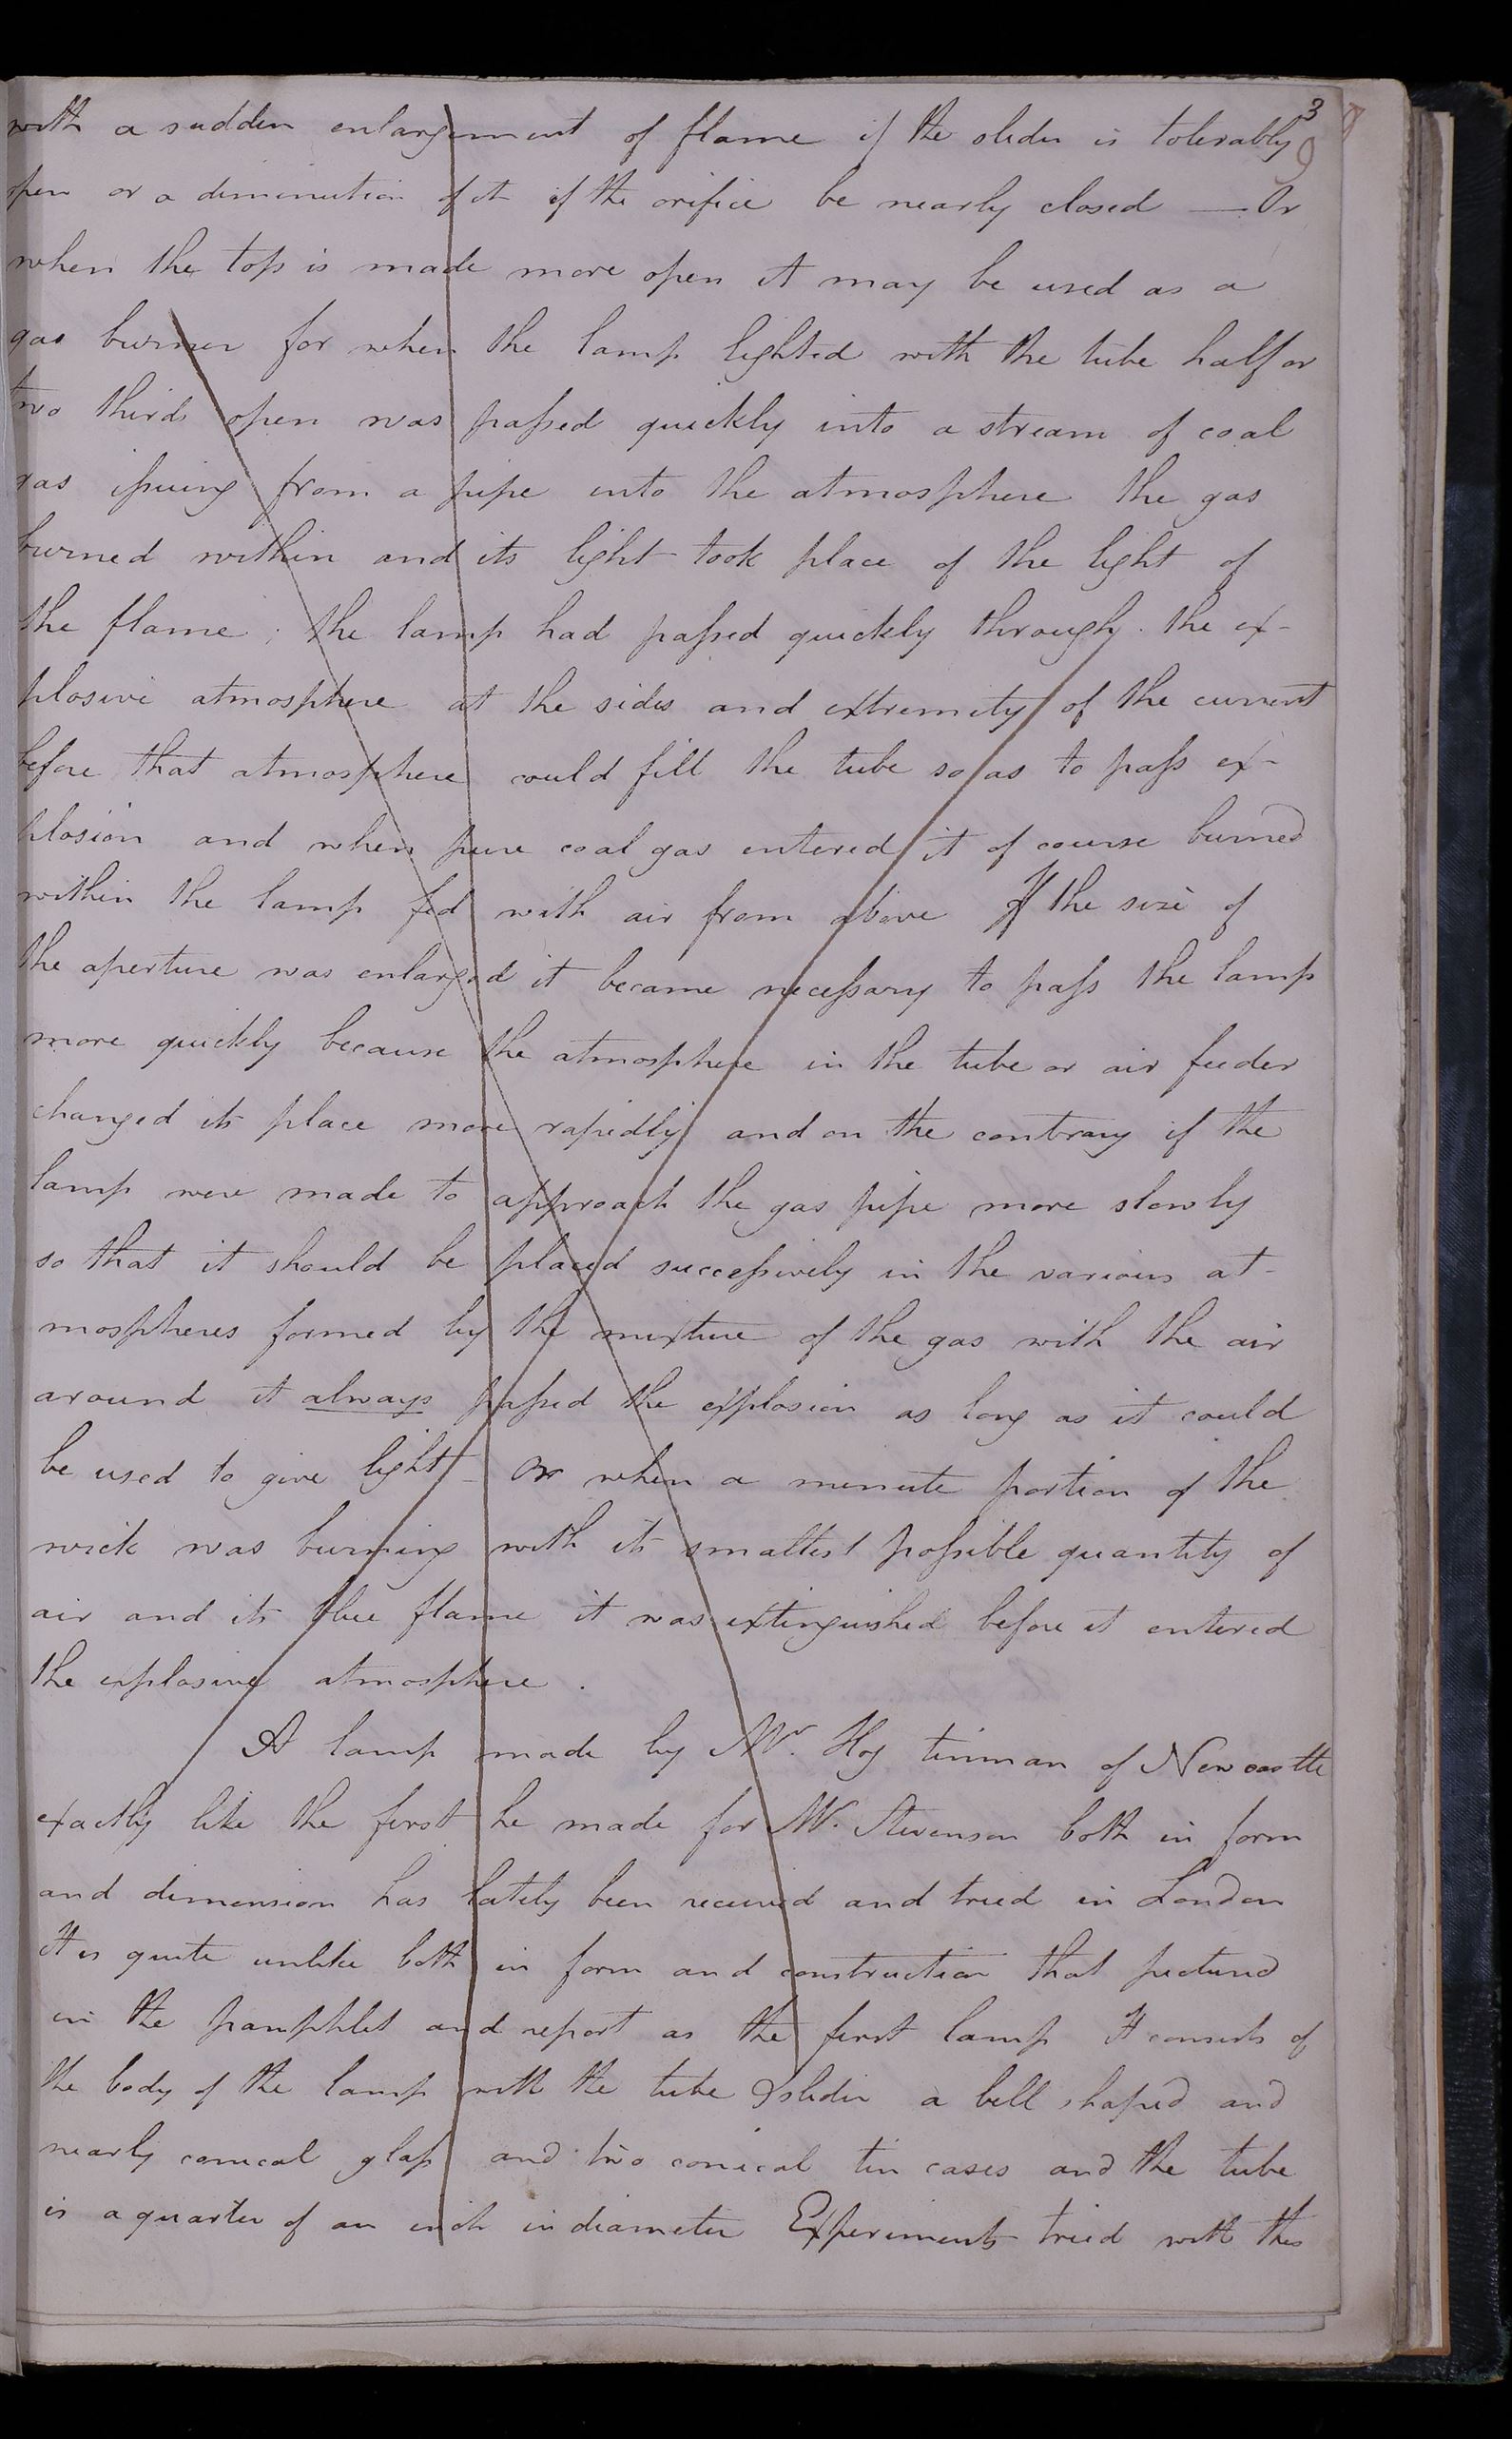 3
with a sudden enlargement of flame if the slider is tolerably
open or a diminution of it if the orifice be nearly closed — Or
when the top is made more open it may be used as a
gas burner for when the lamp lighted with the tube half or
two thirds open was paſsed quickly into a stream of coal
gas iſsuing from a pipe into the atmosphere the gas
burned within and its light took place of the light of
the flame; the lamp had paſsed quickly through the ex-
plosive atmosphere at the sides and extremity of the current
before that atmosphere could fill the tube so as to paſs ex-
plosion and when pure coal gas entered it of course burned
within the lamp fed with air from above If the size of
the aperture was enlarged it became neceſsary to paſs the lamp
more quickly because the atmosphere in the tube or air feeder
changed its place more rapidly and on the contrary if the
lamp were made to approach the gas pipe more slowly
so that it should be placed succeſsively in the various at-
mospheres formed by the mixture of the gas with the air
around it always paſsed the explosion as long as it could
be used to give light – Or when a minute portion of the
wick was burning with its smallest poſsible quantity of
air and its blue flame it was extinguished before it entered
the explosive atmosphere.
A lamp made by Mr. Hog tinman of Newcastle
exactly like the first he made for Mr. Stevenson both in form
and dimension has lately been received and tried in London
It is quite unlike both in form and construction that pictured
in the pamphlet and report as the first lamp It consists of
the body of the lamp with the tube & slider a bell shaped and
nearly conical glaſs and two conical tin cases and the tube
is a quarter of an inch in diameter Experiments tried with this